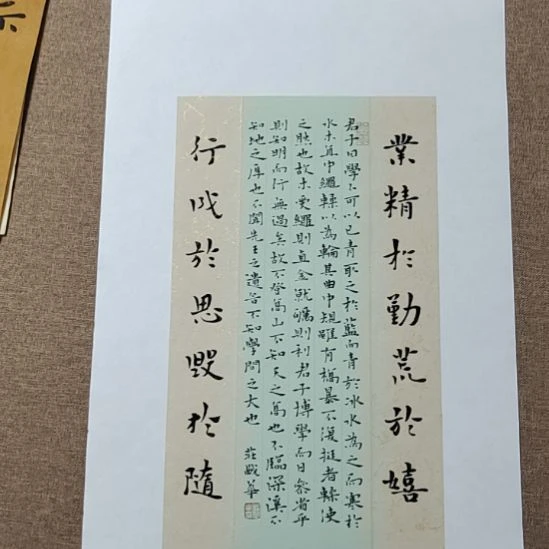 業精於勤荒於嬉
君子曰學不可以已青取之於藍而青於冰水為之而寒於
水木直中繩輮以為輪其曲中規雖有槁暴不復挺者輮使
之然也故木受繩則直金就礪則利君子博學而日參省乎
則知明而行無過矣故不登高山不知天之高也不臨深溪不
知地之厚也不聞先王之遺言不知學問之大也
行成於思毀於隨